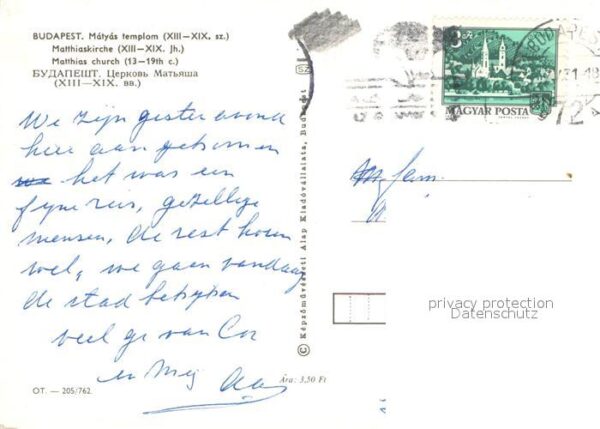 BUDAPEST. Mátyás templom (XIII—XIX. sz.)
Matthiaskirche (XIII—XIX. Jh.)
Matthias church (13—19th c.)
БУДАПЕШТ. Церковь Матьяша
(XIII—XIX. вв.)
We zijn gister avond
hier aan gekomen
het was een
fijne reis, gezellige
mensen, de rest komt
wel, we gaan vandaag
de stad bekijken
veel gr van Cor
en Mij
OT. — 205/762
Ára: 3,50 Ft
© Képzőművészeti Alap Kiadóvállalata, Budapest
SZ
3 Ft
MAGYAR POSTA
BUDAPEST
72
fam.
privacy protection
Datenschutz